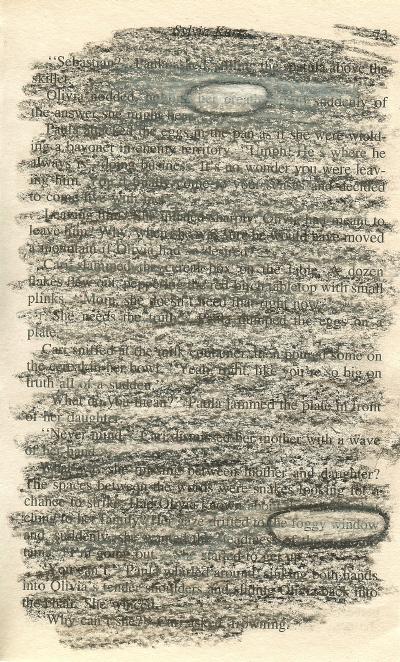 Sylvia Kurtz 73
"Sebastian?" Paula asked, lifting the spatula above the
skillet.
Olivia nodded, her breath suddenly of
the answer she might hear.
Paula attacked the eggs in the pan as if she were wield-
ing a bayonet in enemy territory. "Umph! He's where he
always is, doing business. It's no wonder you were leav-
ing him. You finally come to your senses and decided
to come live with us."
Leaving him? She inhaled sharply. Olivia had meant to
leave him? Why, when she was sure he would have moved
a mountain if Olivia had desired?
Cari slammed the cereal box on the table. A dozen
flakes flew out, peppering the red tabletop with small
plinks. "Mom, she doesn't need that right now."
"She needs the truth." Paula dumped the eggs on a
plate.
Cari sniffed at the milk container, then poured some on
the cereal in her bowl. "Yeah, right, like you're so big on
truth all of a sudden."
"What do you mean?" Paula jammed the plate in front
of her daughter.
"Never mind." Cari dismissed her mother with a wave
of her hand.
What was she missing between mother and daughter?
The spaces between the words were snakes looking for a
chance to strike. Had Olivia known
cling to her family? Her gaze drifted to the foggy window
and, suddenly, she wanted the
thing. "I'm going out." She started to get up.
"You can't." Paula whirled around, sinking both hands
into Olivia's tender shoulders and sliding Olivia back into
the chair. She winced.
"Why can't she?" Cari asked, frowning.